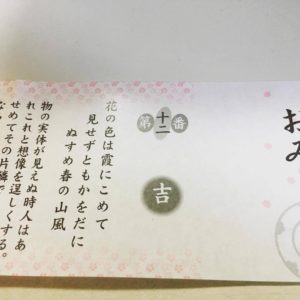 おみ
第十二番
吉
花の色は霞にこめて
見せずともかをだに
ぬすめ春の山風
物の実体が見えぬ時人はあ
れこれと想像を逞しくする。
せめてその片鱗で